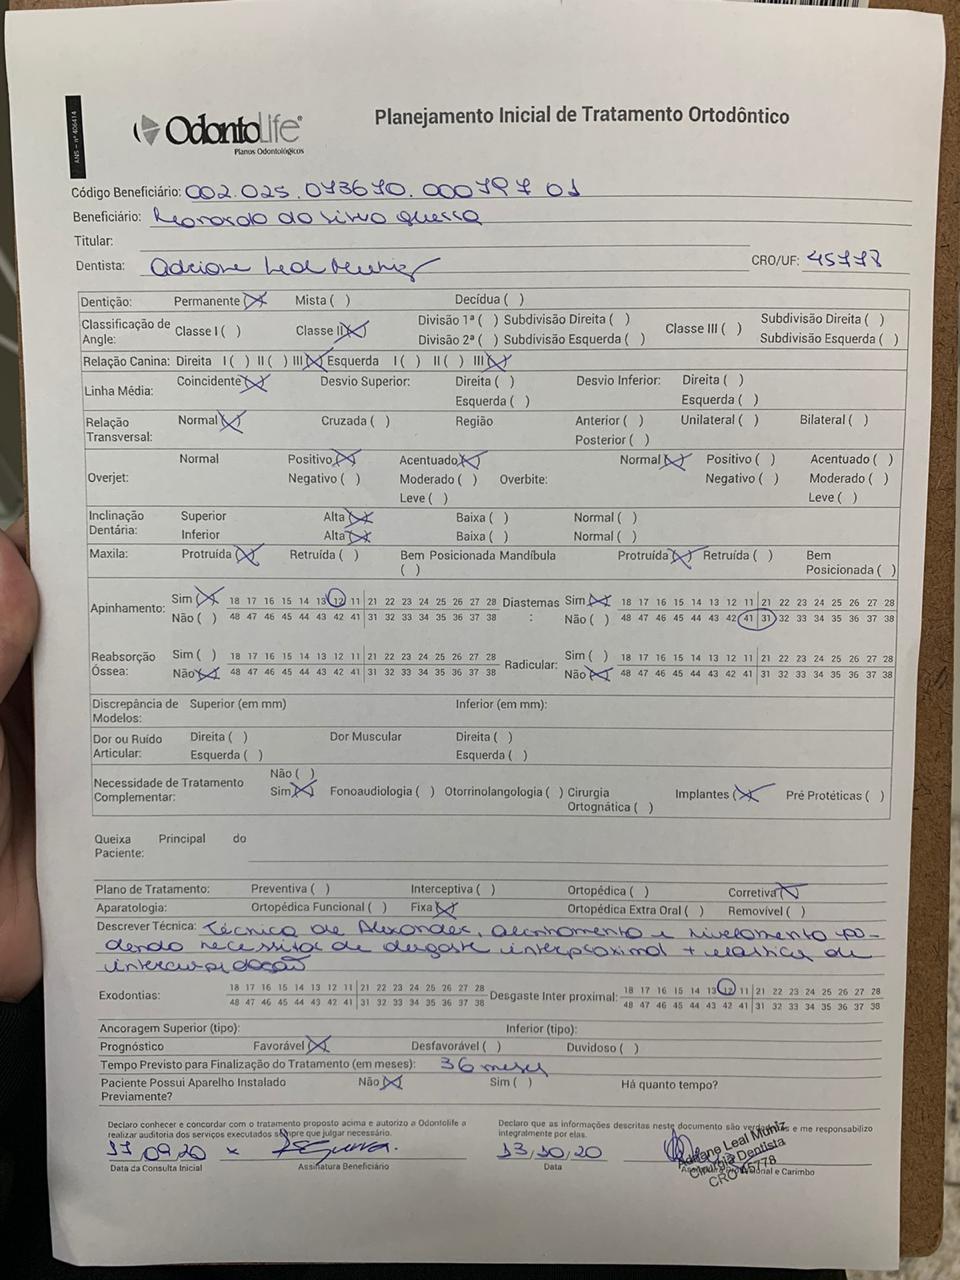 ANS - nº 406414
OdontoLife®
Planos Odontológicos
Planejamento Inicial de Tratamento Ortodôntico
Código Beneficiário: 002.025.073670.000797 01
Beneficiário: Leonardo da Silva Guerra
Titular:
Dentista: Adriane Leal Muniz CRO/UF: 45778
Dentição: Permanente (X) Mista ( ) Decídua ( )
Classificação de Angle: Classe I ( ) Classe II (X) Divisão 1ª ( ) Subdivisão Direita ( ) Divisão 2ª ( ) Subdivisão Esquerda ( ) Classe III ( ) Subdivisão Direita ( ) Subdivisão Esquerda ( )
Relação Canina: Direita I ( ) II ( ) III (X) Esquerda I ( ) II ( ) III (X)
Linha Média: Coincidente (X) Desvio Superior: Direita ( ) Esquerda ( ) Desvio Inferior: Direita ( ) Esquerda ( )
Relação Transversal: Normal (X) Cruzada ( ) Região Anterior ( ) Posterior ( ) Unilateral ( ) Bilateral ( )
Overjet: Normal Positivo (X) Negativo ( ) Acentuado (X) Moderado ( ) Leve ( ) Overbite: Normal (X) Positivo ( ) Negativo ( ) Acentuado ( ) Moderado ( ) Leve ( )
Inclinação Dentária: Superior Alta (X) Baixa ( ) Normal ( )
Inferior Alta (X) Baixa ( ) Normal ( )
Maxila: Protruída (X) Retruída ( ) Bem Posicionada ( ) Mandíbula Protruída (X) Retruída ( ) Bem Posicionada ( )
Apinhamento: Sim (X) 18 17 16 15 14 13 12 11 21 22 23 24 25 26 27 28 Diastemas : Sim (X) 18 17 16 15 14 13 12 11 21 22 23 24 25 26 27 28
Não ( ) 48 47 46 45 44 43 42 41 31 32 33 34 35 36 37 38 Não ( ) 48 47 46 45 44 43 42 41 31 32 33 34 35 36 37 38
Reabsorção Óssea: Sim ( ) 18 17 16 15 14 13 12 11 21 22 23 24 25 26 27 28 Radicular: Sim ( ) 18 17 16 15 14 13 12 11 21 22 23 24 25 26 27 28
Não (X) 48 47 46 45 44 43 42 41 31 32 33 34 35 36 37 38 Não (X) 48 47 46 45 44 43 42 41 31 32 33 34 35 36 37 38
Discrepância de Modelos: Superior (em mm) Inferior (em mm):
Dor ou Ruído Articular: Direita ( ) Esquerda ( ) Dor Muscular Direita ( ) Esquerda ( )
Necessidade de Tratamento Complementar: Não ( ) Sim (X) Fonoaudiologia ( ) Otorrinolangologia ( ) Cirurgia Ortognática ( ) Implantes (X) Pré Protéticas ( )
Queixa Principal do Paciente:
Plano de Tratamento: Preventiva ( ) Interceptiva ( ) Ortopédica ( ) Corretiva (X)
Aparatologia: Ortopédica Funcional ( ) Fixa (X) Ortopédica Extra Oral ( ) Removível ( )
Descrever Técnica: Técnica de Alexander, alinhamento e nivelamento po-
dendo necessitar de desgaste interproximal + elástico de
intercuspidação
Exodontias: 18 17 16 15 14 13 12 11 21 22 23 24 25 26 27 28 Desgaste Inter proximal: 18 17 16 15 14 13 12 11 21 22 23 24 25 26 27 28
48 47 46 45 44 43 42 41 31 32 33 34 35 36 37 38 48 47 46 45 44 43 42 41 31 32 33 34 35 36 37 38
Ancoragem Superior (tipo): Inferior (tipo):
Prognóstico Favorável (X) Desfavorável ( ) Duvidoso ( )
Tempo Previsto para Finalização do Tratamento (em meses): 36 meses
Paciente Possui Aparelho Instalado Previamente? Não (X) Sim ( ) Há quanto tempo?
Declaro conhecer e concordar com o tratamento proposto acima e autorizo a Odontolife a
realizar auditoria dos serviços executados sempre que julgar necessário.
Declaro que as informações descritas neste documento são verdadeiras e me responsabilizo
integralmente por elas.
17,09,20 x LSGuerra. 13,10,20
Data da Consulta Inicial Assinatura Beneficiário Data Assinatura Profissional e Carimbo
Adriane Leal Muniz
Cirurgiã Dentista
CRO 45778